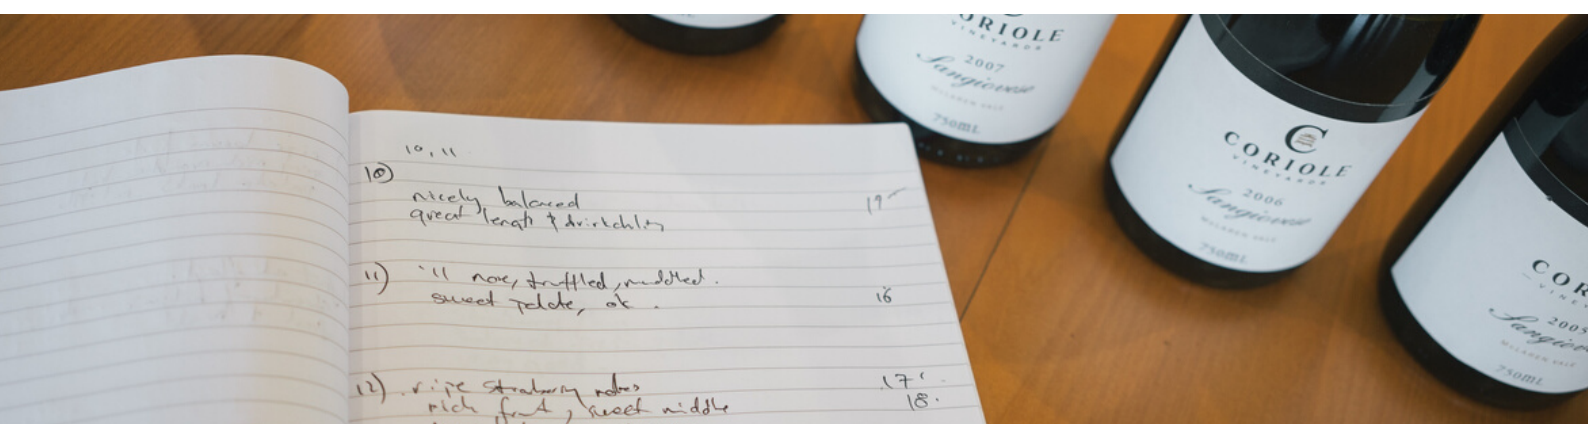 10, 11
10)
nicely balanced
great length & drinkability
19-
11) '11 nose, truffled, muddled.
sweet palate, ok.
16
12) ripe strawberry notes
17
rich fruit, sweet middle
18.
CORIOLE
VINEYARDS
2007
Sangiovese
McLAREN VALE
750mL
C
CORIOLE
VINEYARDS
2006
Sangiovese
McLAREN VALE
750mL
COR
VINE
2005
Sangiov
McLAREN
750mL